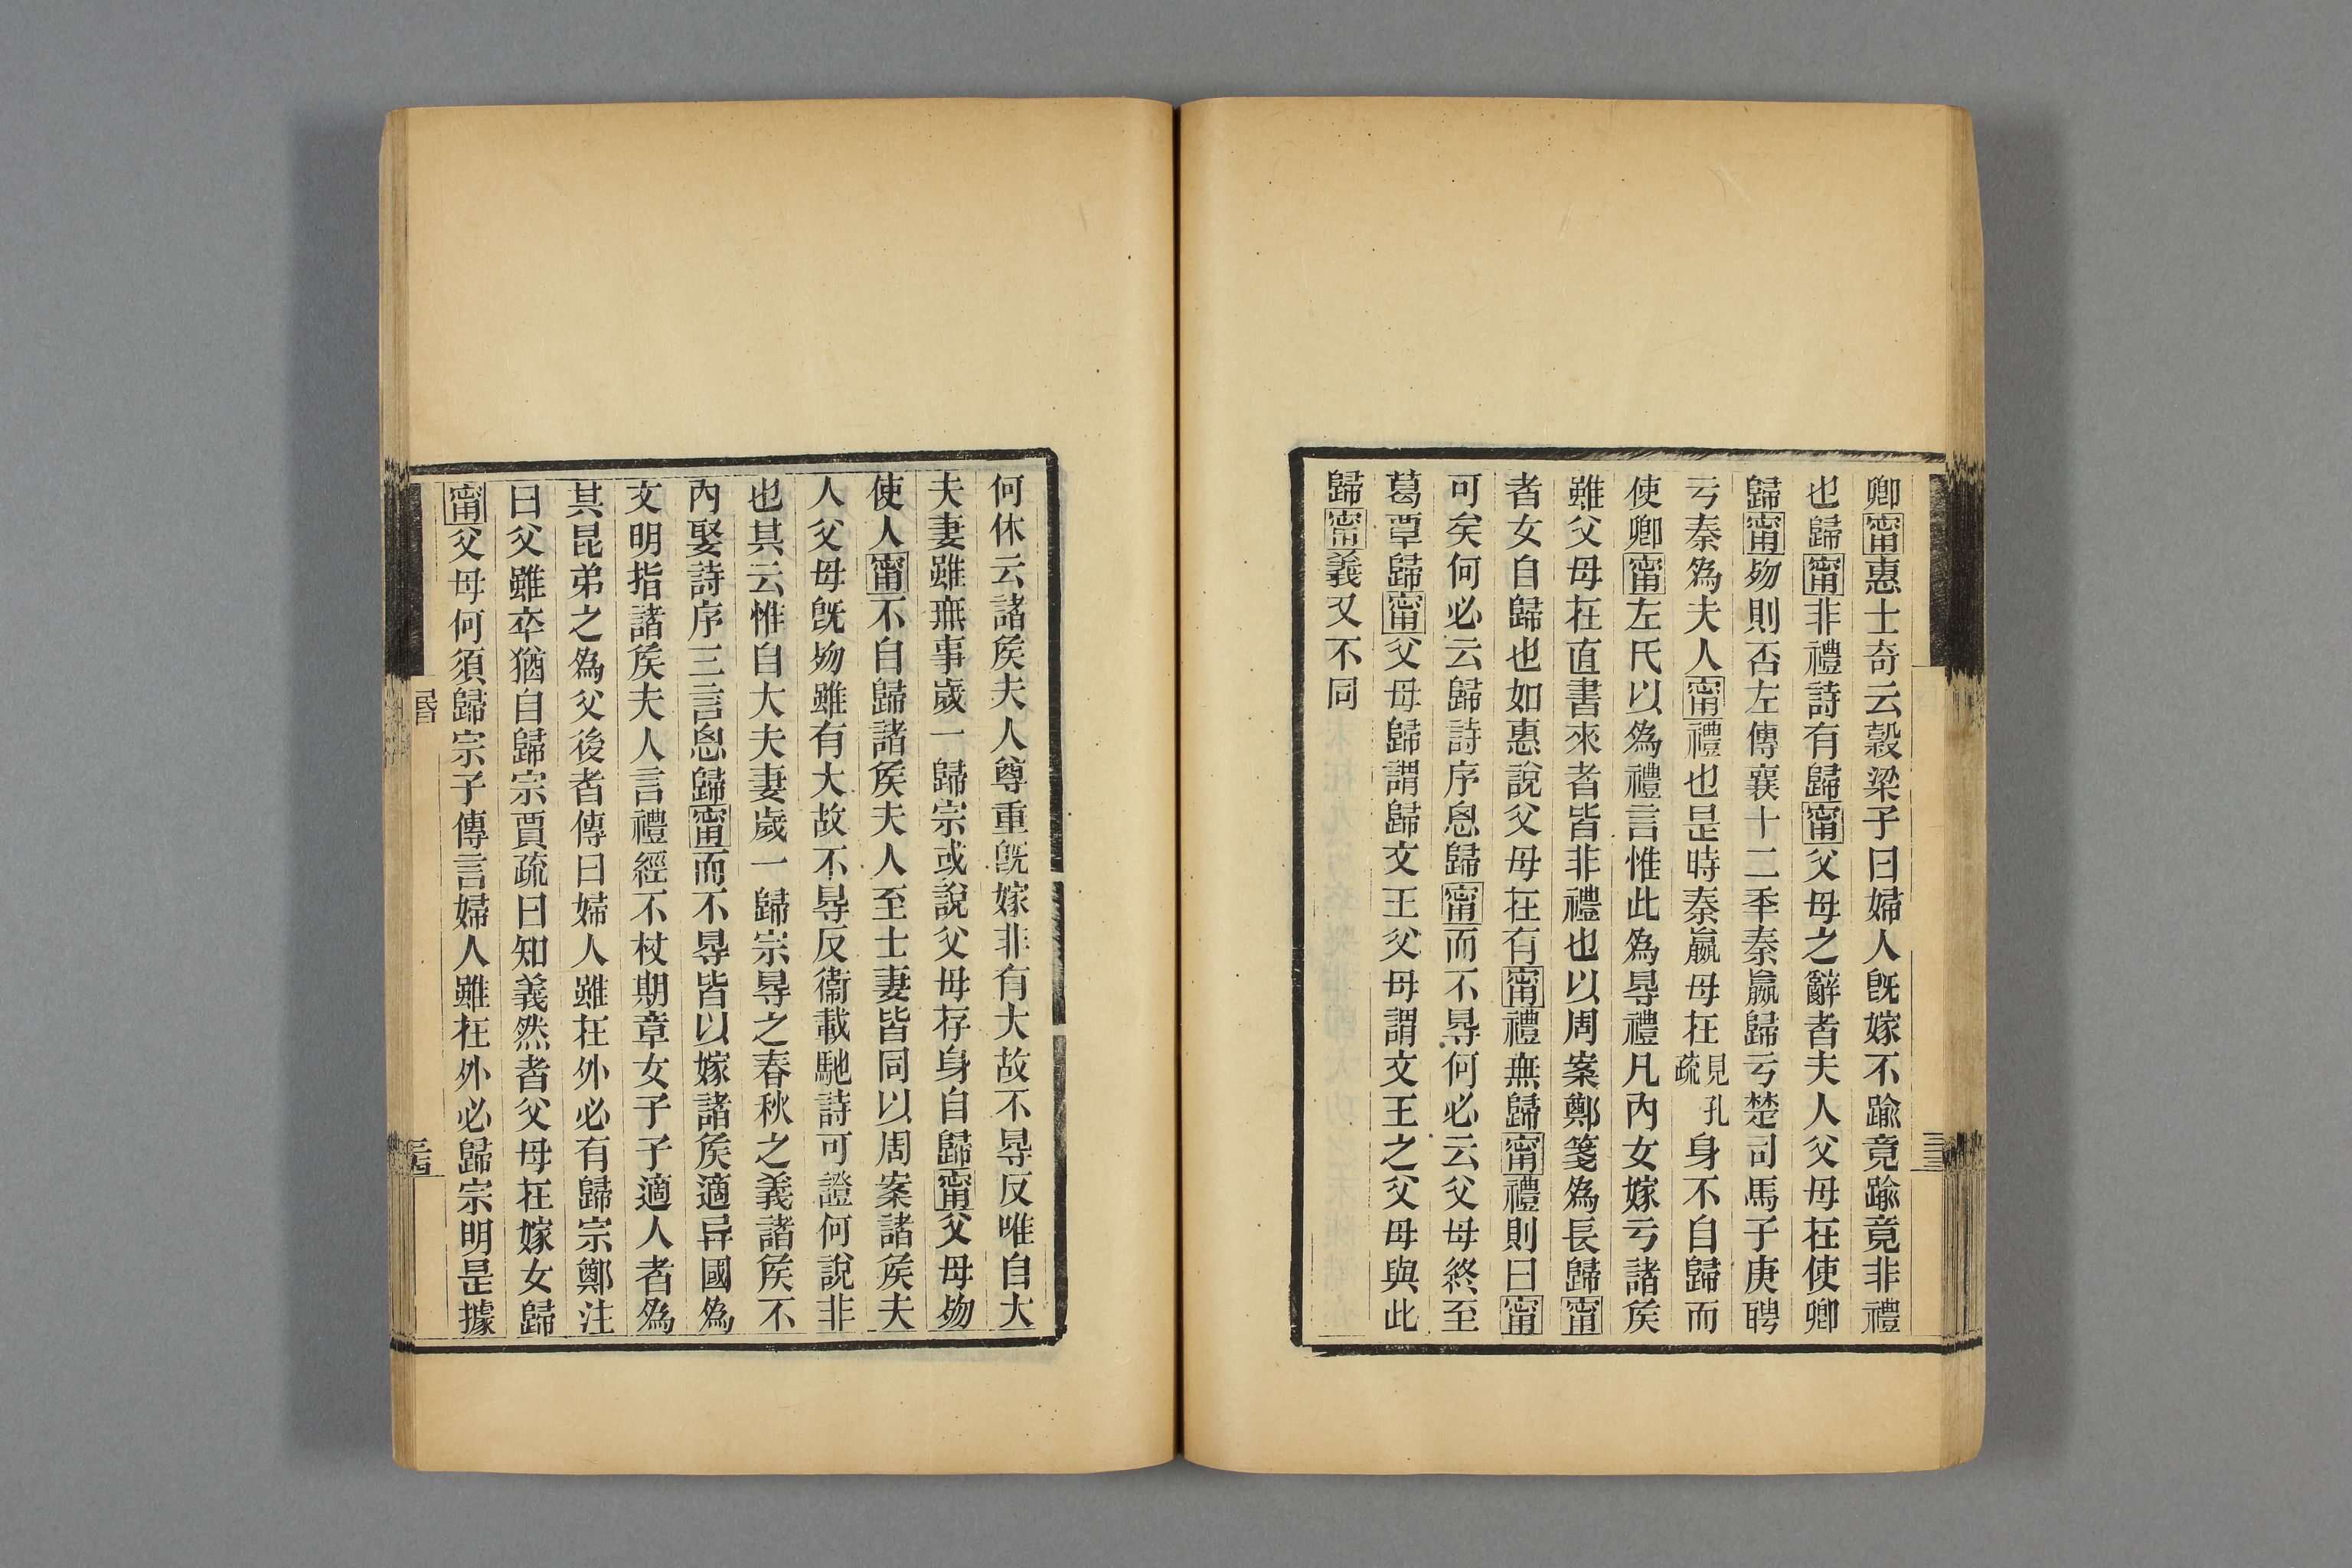 卿甯惠士奇云穀梁子曰婦人旣嫁不踰竟踰竟非禮
也歸甯非禮詩有歸甯父母之辭者夫人父母在使卿
歸甯歾則否左傳襄十二秊秦嬴歸亏楚司馬子庚聘
亏秦爲夫人甯禮也昰時秦嬴母在見孔疏身不自歸而
使卿甯左氏以爲禮言惟此爲㝵禮凡內女嫁亏諸矦
雖父母在直書來者皆非禮也以周案鄭箋爲長歸甯
者女自歸也如惠說父母在有甯禮無歸甯禮則曰甯
可矣何必云歸詩序恖歸甯而不㝵何必云父母終至
葛覃歸甯父母歸謂歸文王父母謂文王之父母與此
歸甯義又不同
何休云諸矦夫人尊重旣嫁非有大故不㝵反唯自大
夫妻雖無事歲一歸宗或說父母存身自歸甯父母歾
使人甯不自歸諸矦夫人至士妻皆同以周案諸矦夫
人父母旣歾雖有大故不㝵反衞載馳詩可證何說非
也其云惟自大夫妻歲一歸宗㝵之春秋之義諸矦不
內娶詩序三言恖歸甯而不㝵皆以嫁諸矦適异國爲
文明指諸矦夫人言禮經不杖期章女子子適人者爲
其昆弟之爲父後者傳曰婦人雖在外必有歸宗鄭注
曰父雖卒猶自歸宗賈疏曰知義然者父母在嫁女歸
甯父母何須歸宗子傳言婦人雖在外必歸宗明昰據
昏